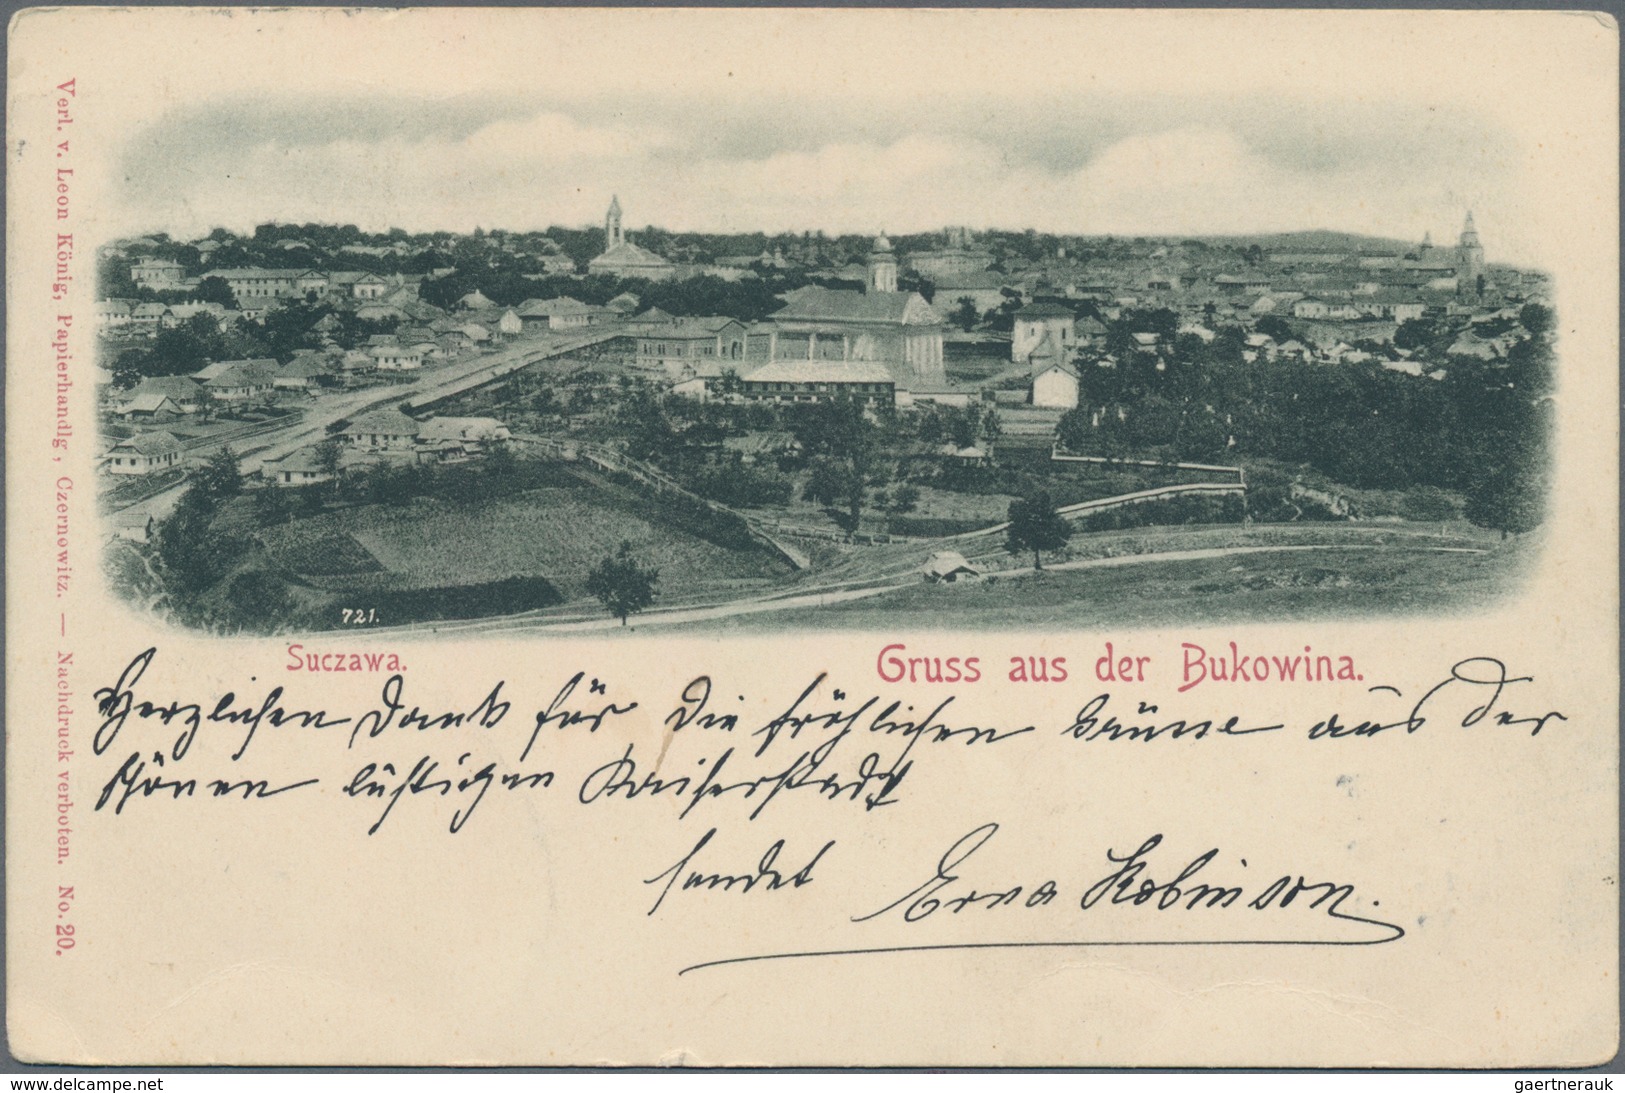 Verl. v. Leon König, Papierhandlg, Czernowitz. — Nachdruck verboten. No. 20.
721.
Suczawa.
Gruss aus der Bukowina.
Herzlichen Dank für die fröhlichen Grüsse aus der
schönen lustigen Kaiserstadt
sendet Erna Robinson.
www.delcampe.net
gaertnerauk